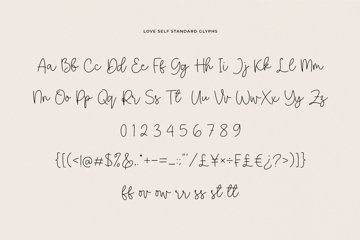 LOVE SELF STANDARD GLYPHS
Aa Bb Cc Dd Ee Ff Gg Hh Ii Jj Kk Ll Mm
Nn Oo Pp Qq Rr Ss Tt Uu Vv Ww Xx Yy Zz
0 1 2 3 4 5 6 7 8 9
{[(<|@#$%&,.*+-=_:;"'/£¥×÷₣£€¿?>)]}
ff ov ow rr ss st tt